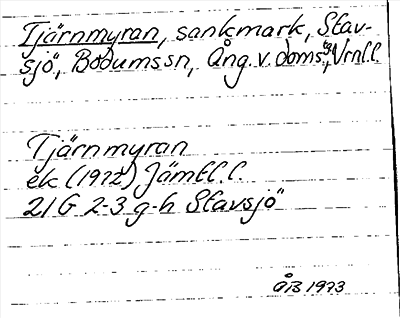 Tjärnmyran, sankmark, Stav-
sjö, Bodumssn, Ång. v. doms:s, Vrnl.l.
Tjärnmyran
ek (1972) Jämtl.l.
21G 2-3 g-h Stavsjö
ÅB 1973